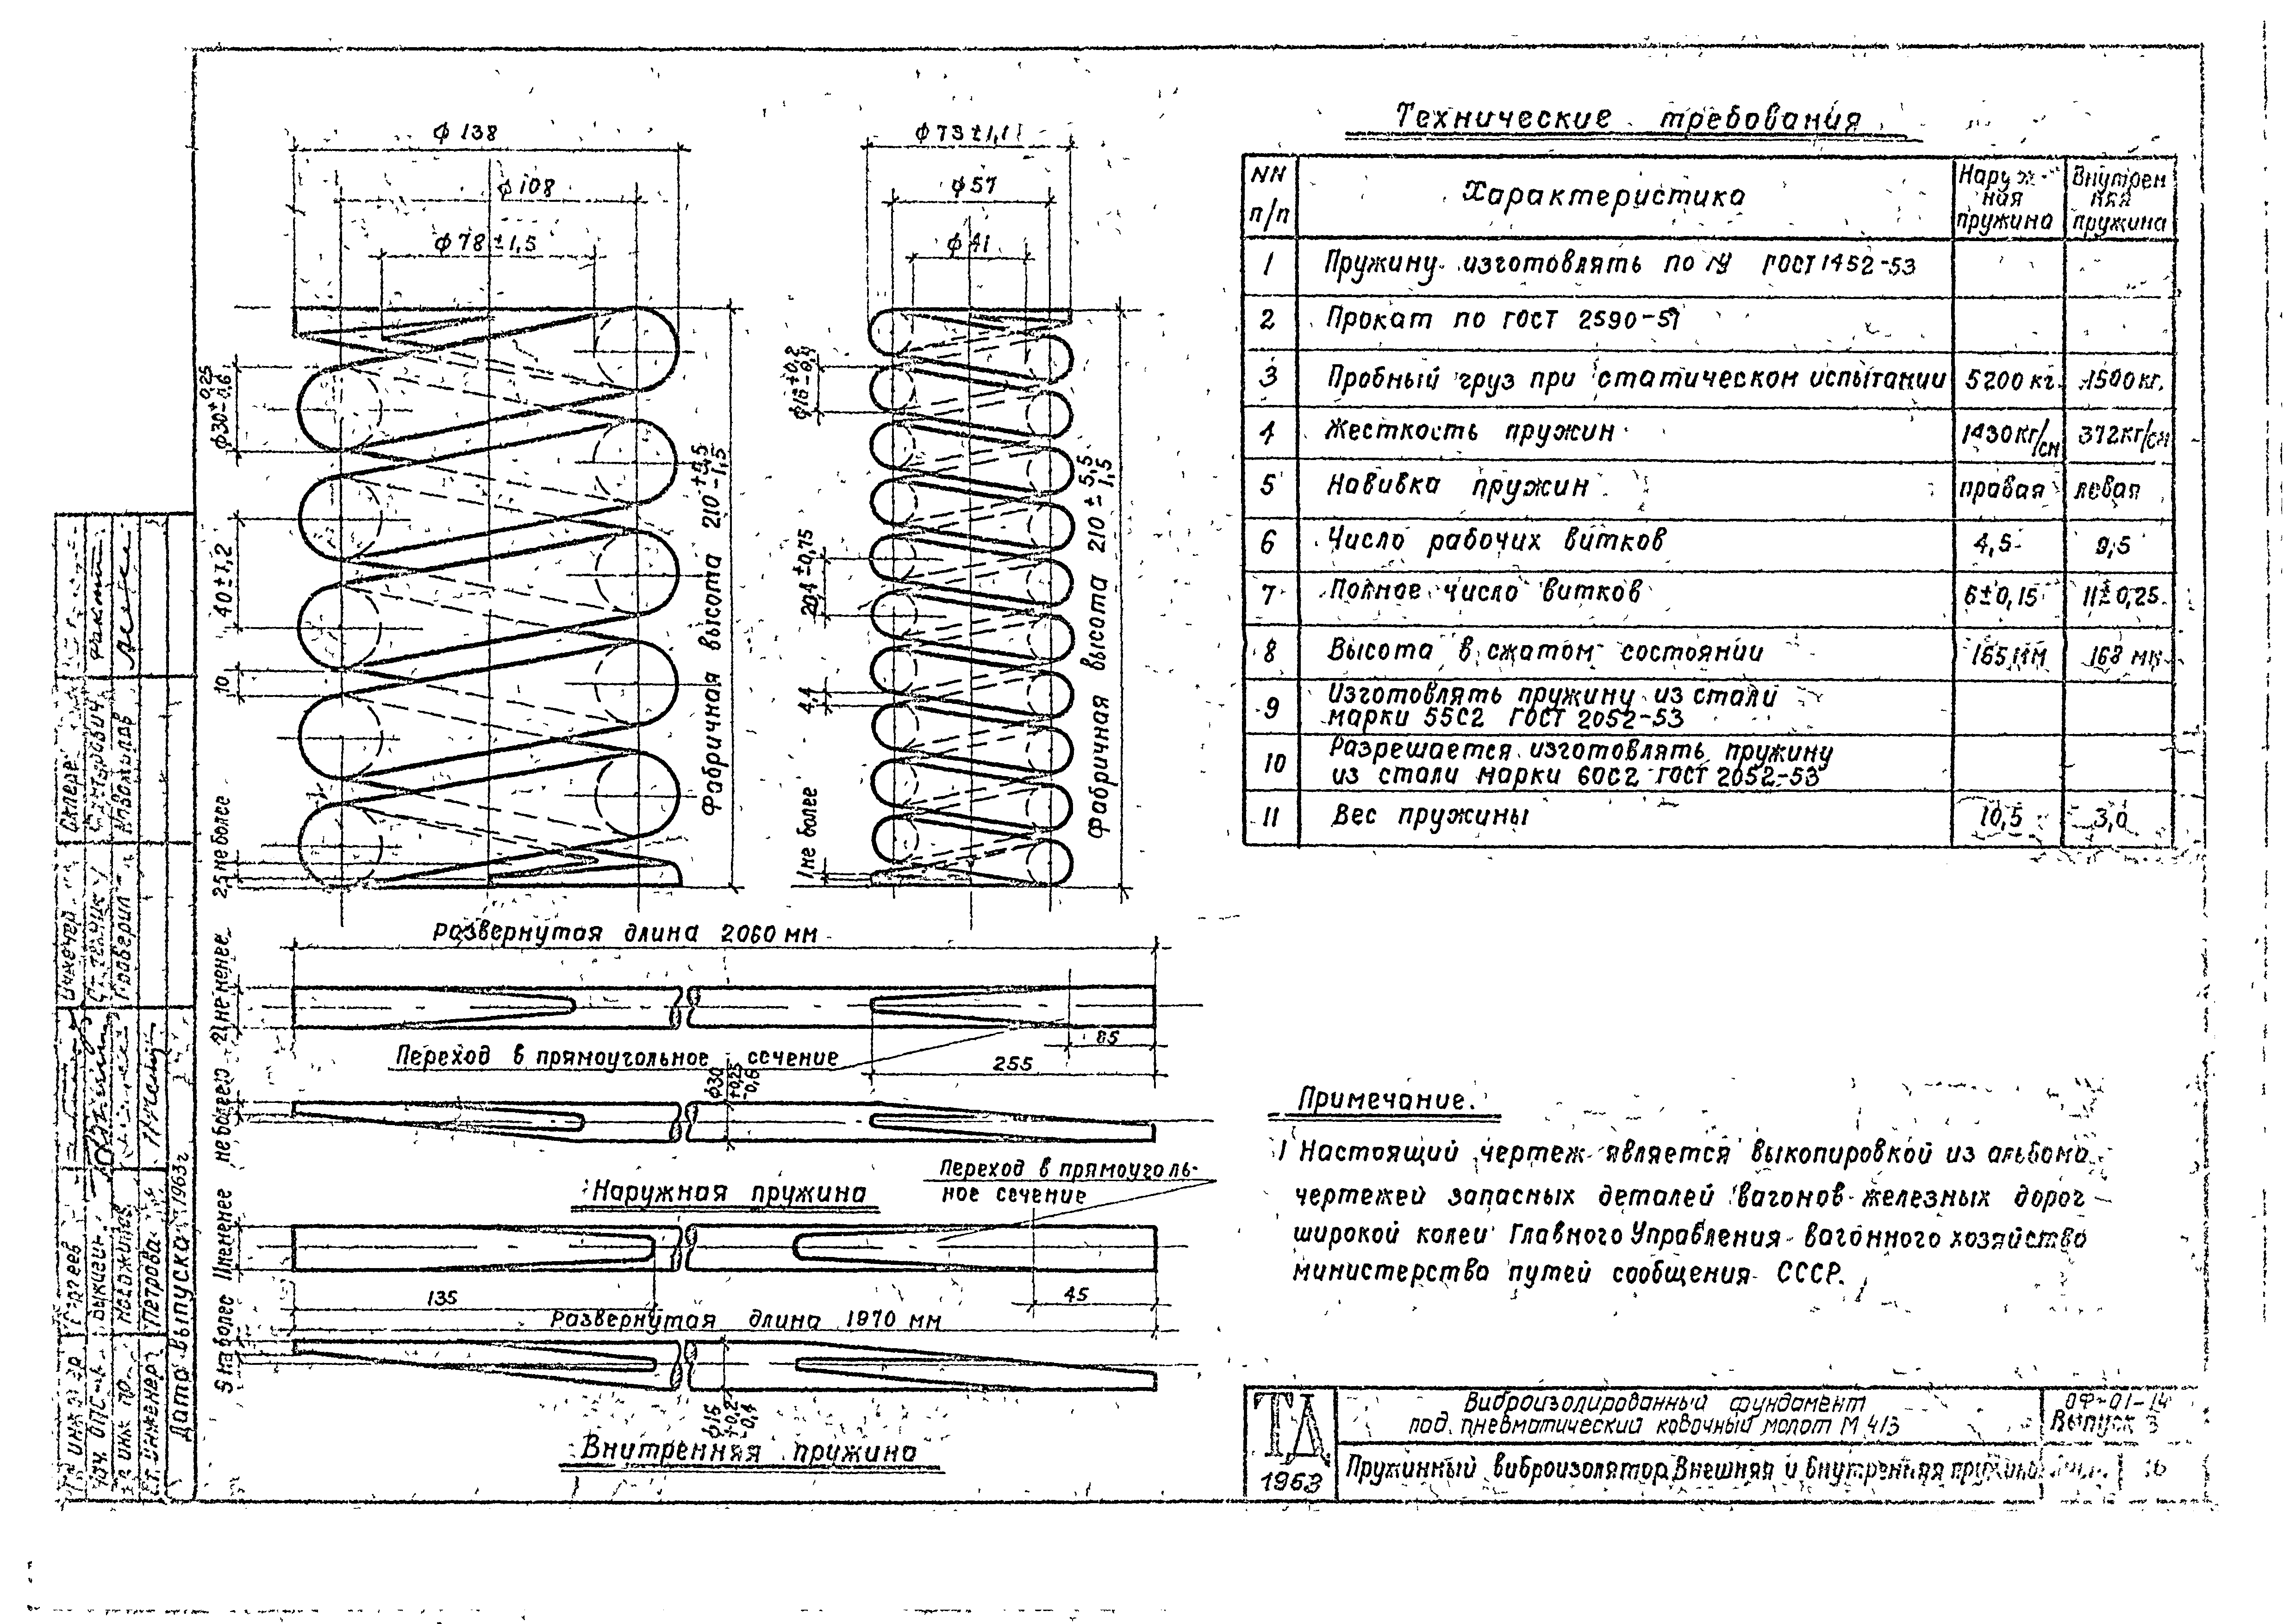 ф 138
ф 108
ф 78 ± 1,5
ф30 +0,25 -0,6
40 ± 1,2
10
2,5 не более
Фабричная высота 210 +5,5 -1,5
ф 73 ± 1,1
ф 57
ф 41
ф16 +0,2 -0,4
20,4 ±0,75
4,4
1 не более
Фабричная высота 210 ± 5,5 1,5
Развернутая длина 2060 мм
21 не менее
85
255
Переход в прямоугольное сечение
ф30 +0,25 -0,6
не более
Наружная пружина
Переход в прямоуголь-
ное сечение
11 не менее
135
45
Развернутая длина 1870 мм
5 не более
ф16 +0,2 -0,4
Внутренняя пружина
Технические требования
NN п/п
Характеристика
Наруж-
ная
пружина
Внутрен
няя
пружина
1 Пружину изготовлять по ТУ ГОСТ 1452-53
2 Прокат по ГОСТ 2590-57
3 Пробный груз при статическом испытании 5200 кг. 1500 кг.
4 Жесткость пружин 1430 кг/см 372 кг/см
5 Навивка пружин правая левая
6 Число рабочих витков 4,5 9,5
7 Полное число витков 6±0,15 11±0,25
8 Высота в сжатом состоянии 165 мм 168 мм
9 Изготовлять пружину из стали
марки 55С2 ГОСТ 2052-53
10 Разрешается изготовлять пружину
из стали марки 60С2 ГОСТ 2052-53
11 Вес пружины 10,5 3,0
Примечание.
1 Настоящий чертеж является выкопировкой из альбома
чертежей запасных деталей вагонов железных дорог
широкой колеи Главного Управления вагонного хозяйства
министерства путей сообщения СССР.
ТД
1963
Виброизолированный фундамент
под пневматический ковочный молот М 413
ОФ-01-14
Выпуск 3
Пружинный виброизолятор. Внешняя и внутренняя пружина
16
Дата выпуска 1963г
Ст. инженер Петрова
Проверил